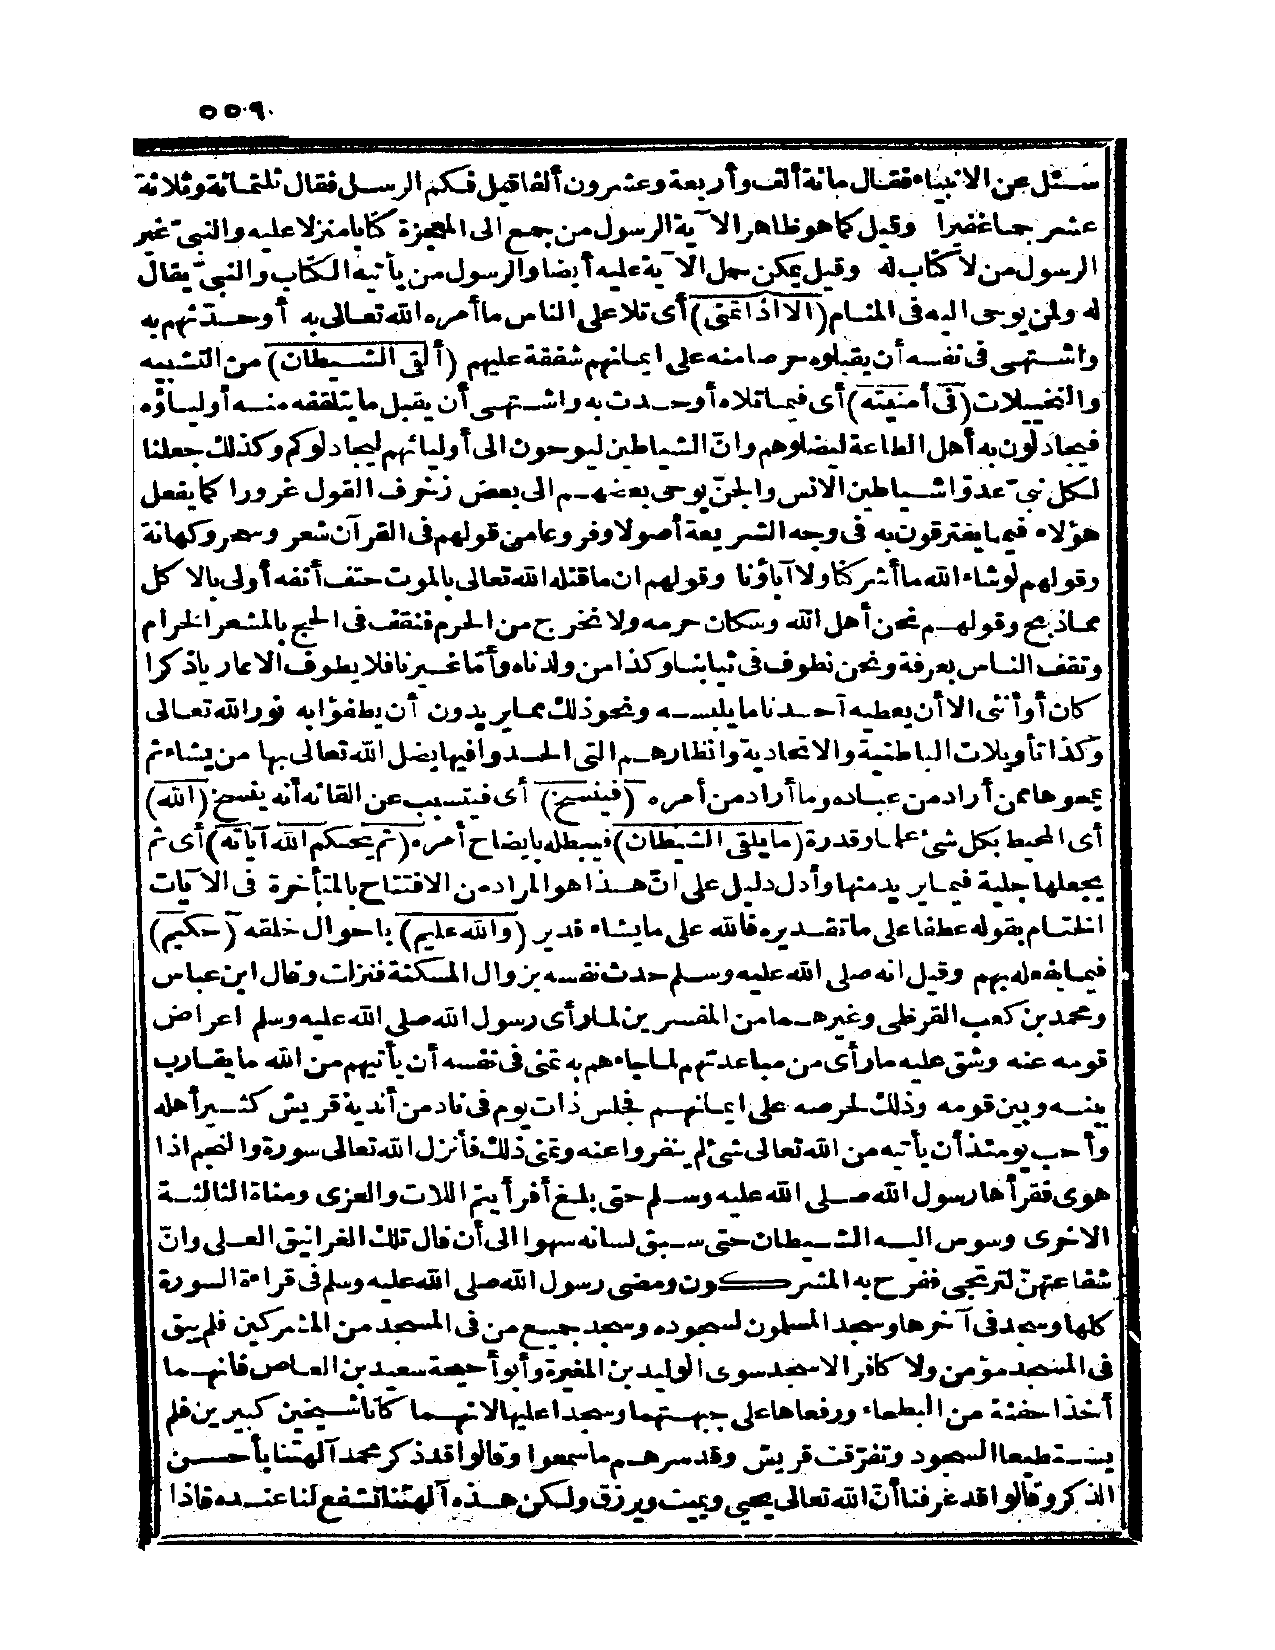 ٥٥٩
سئل عن الانبياء فقال مائة ألف وأربعة وعشرون ألفا قيل فكم الرسل فقال ثلثمائة وثلاثة
عشر جما غفيرا وقيل كما هو ظاهر الآية الرسول من جمع الى المعجزة كتابا منزلا عليه والنبي غير
الرسول من لا كتاب له وقيل يمكن حمل الآية عليه أيضا والرسول من يأتيه الكتاب والنبيّ يقال
له ولمن يوحى اليه فى المنام (الا اذا تمنى) أى تلا على الناس ما أمره الله تعالى به أو حدّثهم به
واشتهى فى نفسه أن يقبلوه حرصا منه على ايمانهم شفقة عليهم (ألقى الشيطان) من التشبيه
والتخيلات (فى أمنيته) أى فيما تلاه أو حدث به واشتهى أن يقبل ما يتلقفه منه أولياؤه
فيجادلون به أهل الطاعة ليضلوهم وانّ الشياطين ليوحون الى أوليائهم ليجادلوكم وكذلك جعلنا
لكل نبىّ عدوّا شياطين الانس والجنّ يوحى بعضهم الى بعض زخرف القول غرورا كما يفعل
هؤلاء فيما يفترقون به فى وجه الشريعة أصولا وفروعا من قولهم فى القرآن شعر وسحر وكهانة
وقولهم لو شاء الله ما أشركنا ولا آباؤنا وقولهم ان ما قتله الله تعالى بالموت حتف أنفه أولى بالاكل
مماذبح وقولهم نحن أهل الله وسكان حرمه ولا نخرج من الحرم فنقف فى الحج بالمشعر الحرام
وتقف الناس بعرفة ونحن نطوف فى ثيابنا وكذا من ولدناه وأمّا غيرنا فلا يطوف الا عاريا ذكرا
كان أو أنثى الا أن يعطيه أحدنا ما يلبسه ونحو ذلك مما يريدون أن يطفؤا به نور الله تعالى
وكذا تأويلات الباطنية والاتحادية وانظارهم التى الحدوا فيها يضل الله تعالى بها من يشاء ثم
يمحوها ممن أراد من عباده وما أراد من أمره (فينسخ) أى فيتسبب عن القائه أنه ينسخ (الله)
أى المحيط بكل شئ علما وقدرة (ما يلقى الشيطان) فيبطله بايضاح أمره (ثم يحكم الله آياته) أى ثم
يجعلها جلية فيما يريد منها وأدل دليل على انّ هذا هو المراد من الافتتاح بالمتأخرة فى الآيات
الختام بقوله عطفا على ما تقديره فالله على ما يشاء قدير (والله عليم) باحوال خلقه (حكيم)
فيما يفعله بهم وقيل انه صلى الله عليه وسلم حدث نفسه بزوال المسكنة فنزلت وقال ابن عباس
ومحمد بن كعب القرظى وغيرهما من المفسرين لما رأى رسول الله صلى الله عليه وسلم اعراض
قومه عنه وشق عليه ما رأى من مباعدتهم لما جاءهم به تمنى فى نفسه أن يأتيهم من الله ما يقارب
بينه وبين قومه وذلك لحرصه على ايمانهم فجلس ذات يوم فى ناد من أندية قريش كثير أهله
وأحب يومئذ أن يأتيه من الله تعالى شئ لم ينفروا عنه وتمنى ذلك فأنزل الله تعالى سورة والنجم اذا
هوى فقرأها رسول الله صلى الله عليه وسلم حتى بلغ أفرأيتم اللات والعزى ومناة الثالثة
الاخرى وسوس اليه الشيطان حتى سبق لسانه سهوا الى أن قال تلك الغرانيق العلى وانّ
شفاعتهنّ لترتجى ففرح به المشركون ومضى رسول الله صلى الله عليه وسلم فى قراءة السورة
كلها وسجد فى آخرها وسجد المسلمون لسجوده وسجد جميع من فى المسجد من المشركين فلم يبق
فى المسجد مؤمن ولا كافر الا سجد سوى الوليد بن المغيرة وأبو أحيحة سعيد بن العاص فانهما
أخذا حفنة من البطحاء ورفعاها على جبهتهما وسجدا عليها لانهما كانا شيخين كبيرين فلم
يستطيعا السجود وتفرّقت قريش وقد سرهم ما سمعوا وقالوا قد ذكر محمد آلهتنا بأحسن
الذكر وقالوا قد عرفنا أنّ الله تعالى يحيى ويميت ويرزق ولكن هذه آلهتنا تشفع لنا عنده فاذا